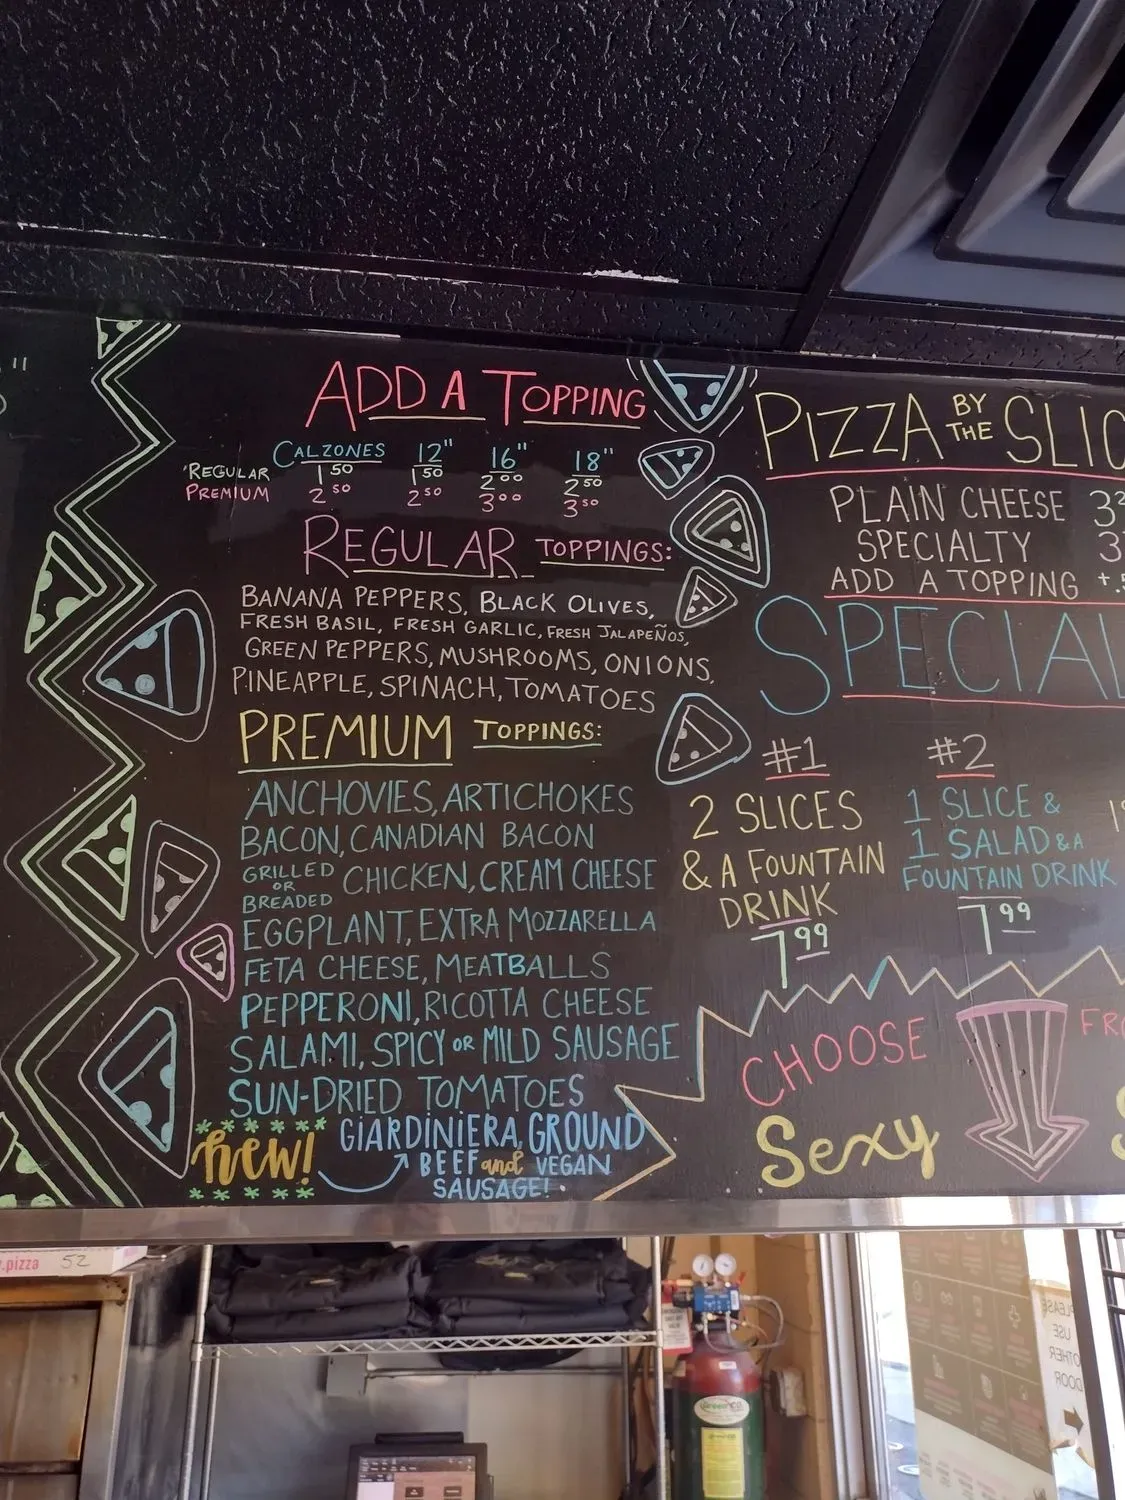 ADD A TOPPING
CALZONES 12" 16" 18"
REGULAR 1 50 1 50 2 00 2 50
PREMIUM 2 50 2 50 3 00 3 50
REGULAR TOPPINGS:
BANANA PEPPERS, BLACK OLIVES,
FRESH BASIL, FRESH GARLIC, FRESH JALAPEÑOS,
GREEN PEPPERS, MUSHROOMS, ONIONS,
PINEAPPLE, SPINACH, TOMATOES
PREMIUM TOPPINGS:
ANCHOVIES, ARTICHOKES
BACON, CANADIAN BACON
GRILLED OR BREADED CHICKEN, CREAM CHEESE
EGGPLANT, EXTRA MOZZARELLA
FETA CHEESE, MEATBALLS
PEPPERONI, RICOTTA CHEESE
SALAMI, SPICY OR MILD SAUSAGE
SUN-DRIED TOMATOES
new! GIARDINIERA, GROUND
BEEF and VEGAN
SAUSAGE!
PIZZA BY THE SLIC
PLAIN CHEESE 3
SPECIALTY 3
ADD A TOPPING +.5
SPECIAL
#1
2 SLICES
& A FOUNTAIN
DRINK
7 99
#2
1 SLICE &
1 SALAD & A
FOUNTAIN DRINK
7 99
CHOOSE
Sexy
FRO
.pizza 52
PLEASE
USE
OTHER
DOOR